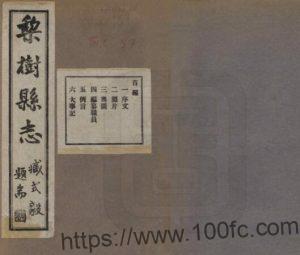 梨樹縣志
臧式毅
題耑
首編
一序文
二照片
三輿圖
四編纂職員
五例言
六大事記
https://www.100fc.com